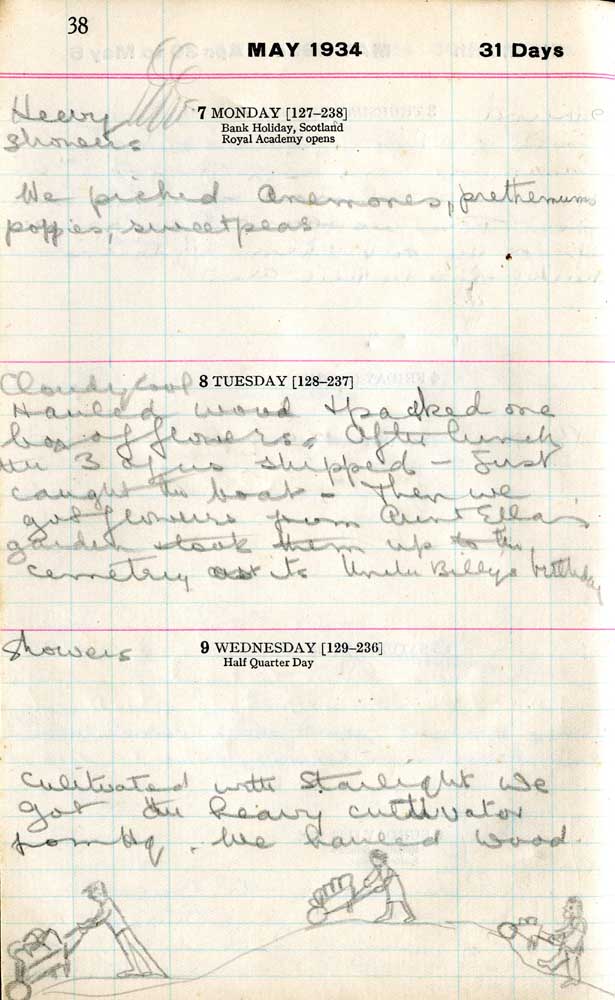 38
MAY 1934 31 Days
Heavy
showers
7 MONDAY [127–238]
Bank Holiday, Scotland
Royal Academy opens
We picked anemones, prethemums
poppies, sweetpeas
Cloudy cool
8 TUESDAY [128–237]
Hauled wood & packed one
box of flowers. After lunch
the 3 of us shipped – Just
caught the boat – Then we
got flowers from Aunt Ella's
garden & took them up to the
cemetery as its Uncle Billys birthday
Showers
9 WEDNESDAY [129–236]
Half Quarter Day
Cultivated with Starlight We
got the heavy cultivator
from Hq. We hauled wood.